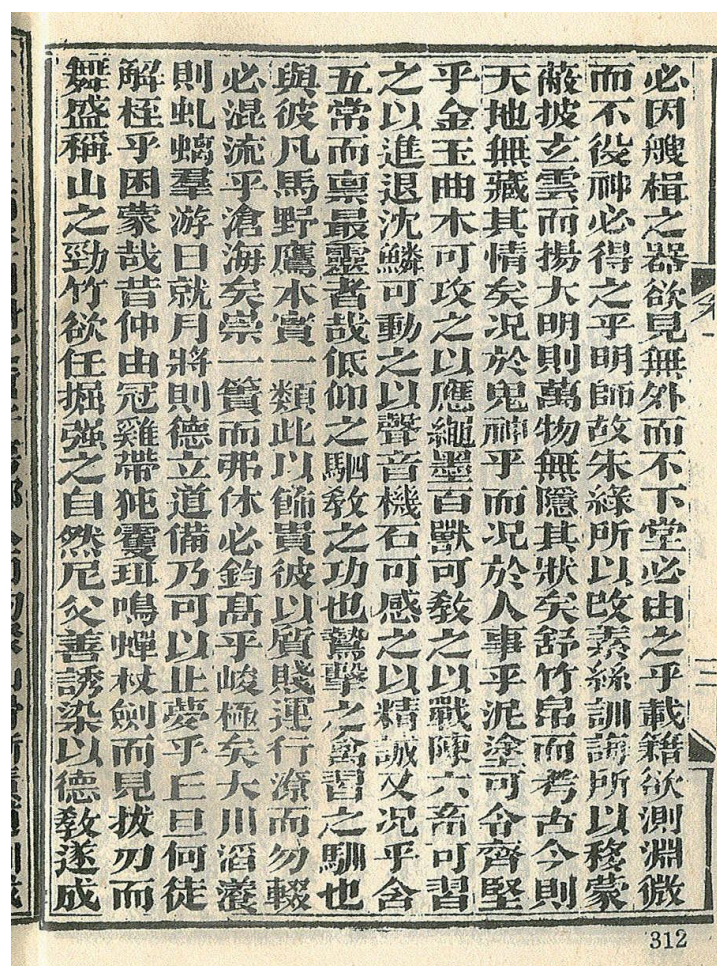 必因艘楫之器欲見無外而不下堂必由之乎載籍欲測淵微
而不役神必得之乎明師故朱綠所以改素絲訓誨所以移蒙
蔽披玄雲而揚大明則萬物無隱其狀矣舒竹帛而考古今則
天地無藏其情矣况於鬼神乎而况於人事乎泥塗可令齊堅
乎金玉曲木可攻之以應繩墨百獸可敎之以戰陳六畜可習
之以進退沈鱗可動之以聲音機石可感之以精誠又况乎含
五常而禀最靈者哉低仰之駟敎之功也鷙擊之禽習之馴也
與彼凡馬野鷹本實一類此以飾貴彼以質賤運行潦而勿輟
必混流乎滄海矣崇一簣而弗休必鈞高乎峻極矣大川滔瀁
則虬螭羣游日就月將則德立道備乃可以止夢乎丘旦何徒
解桎乎困蒙哉昔仲由冠雞帶㹠靃珥鳴蟬杖劍而見拔刃而
舞盛稱山之勁竹欲任掘强之自然尼父善誘染以德敎遂成
三
312